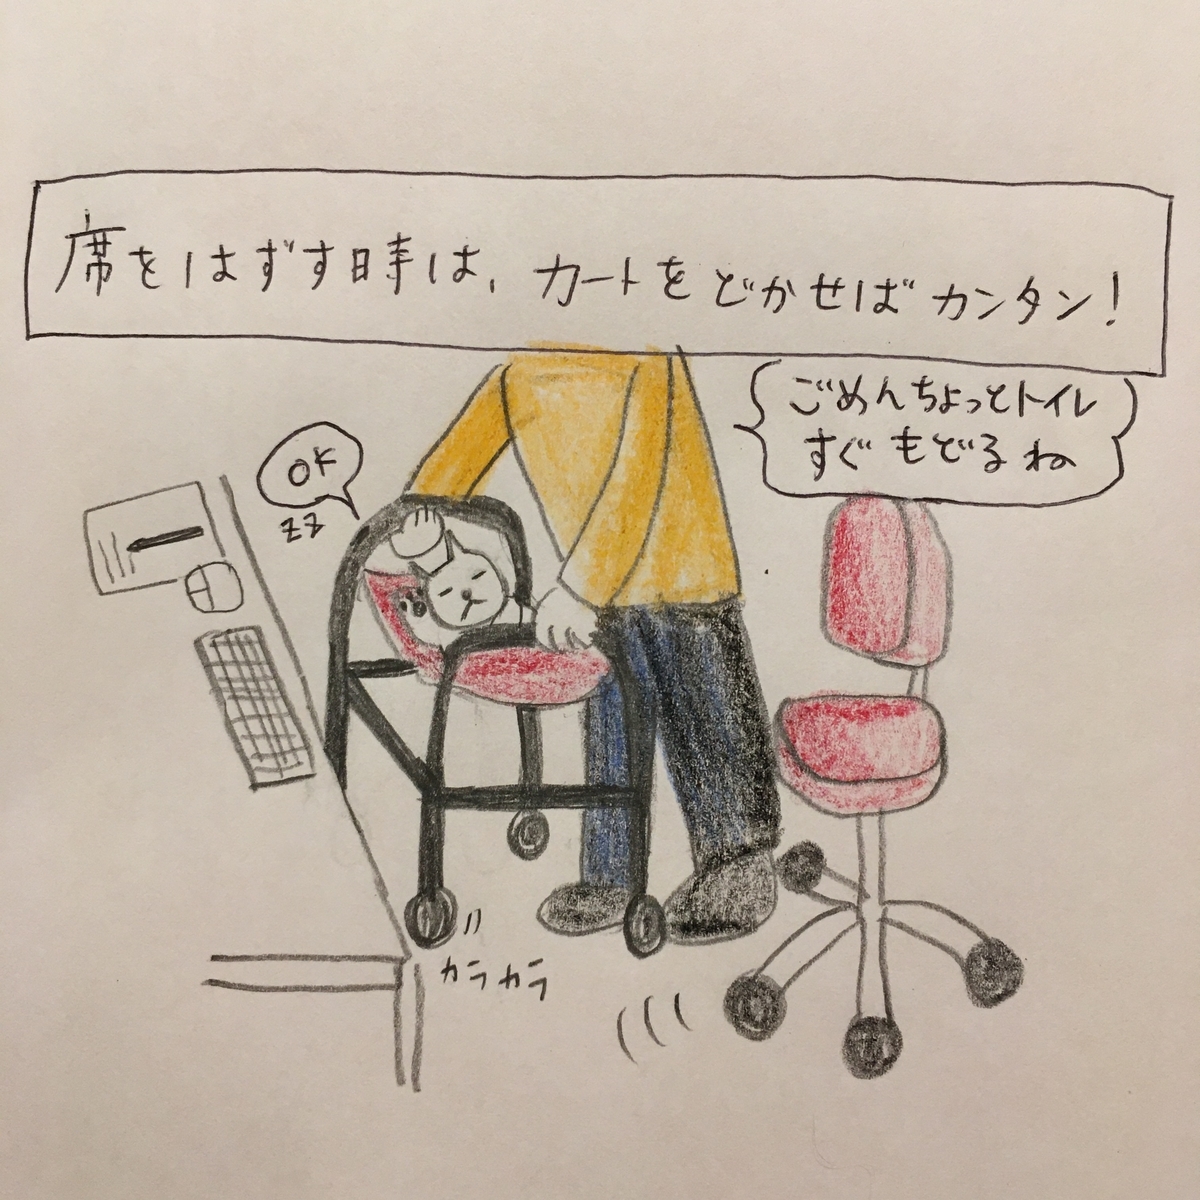 席をはずす時は、カートをどかせばカンタン!
ごめんちょっとトイレ
すぐもどるね
OK
zz
カラカラ